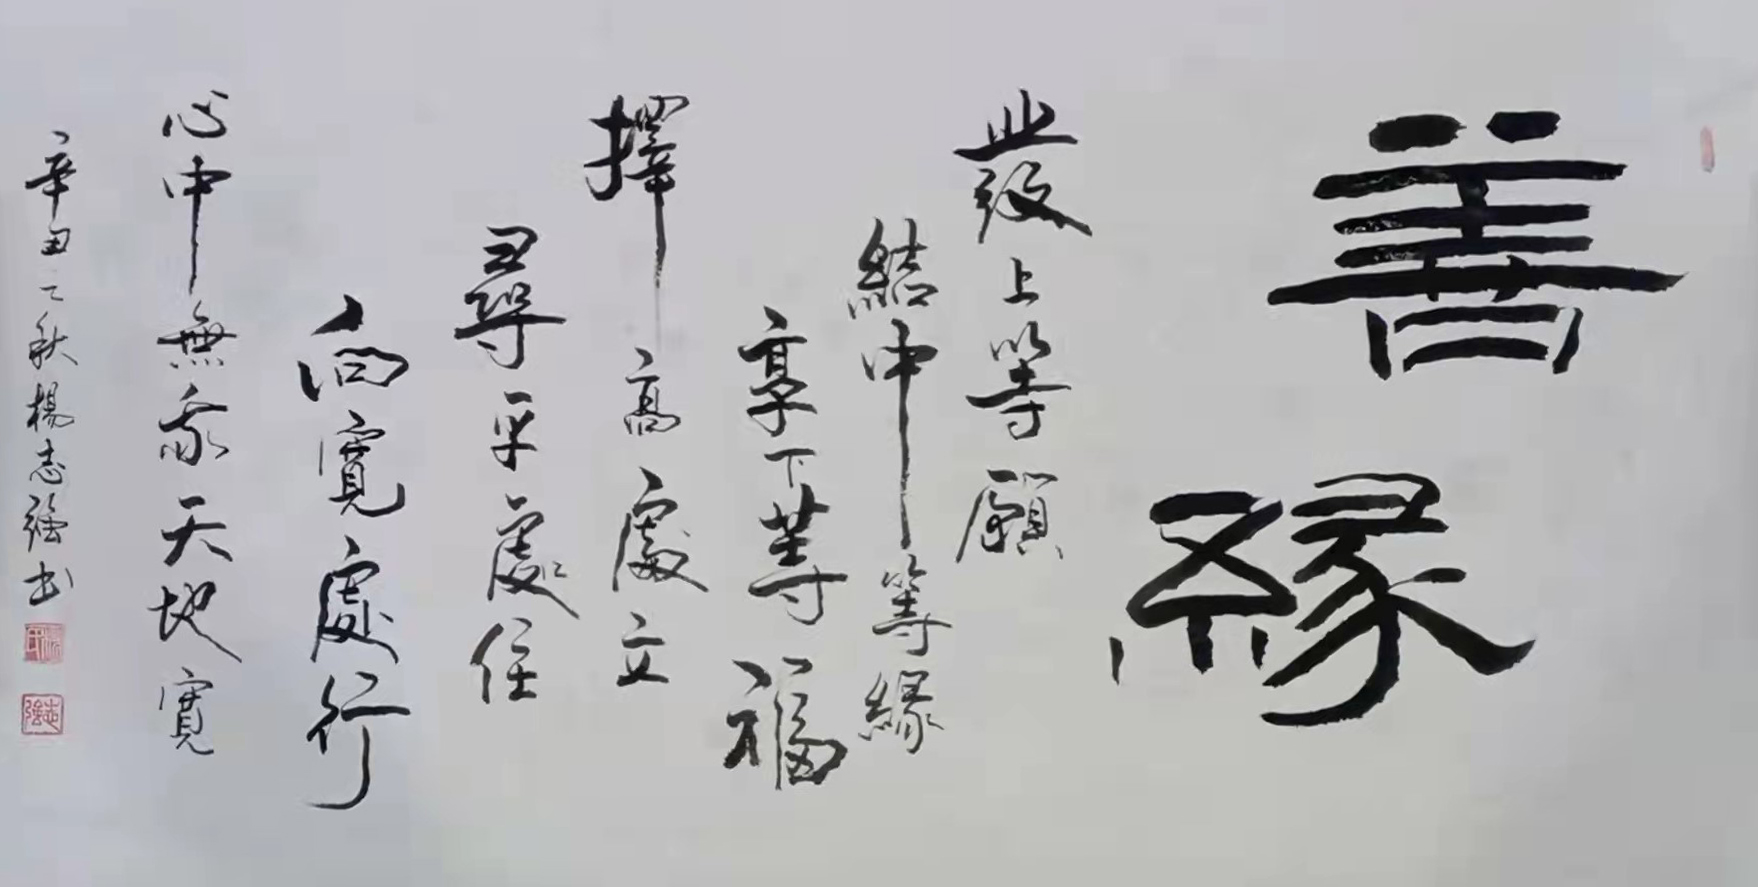 善緣
發上等願
結中等緣
享下等福
擇高處立
尋平處住
向寬處行
心中無我天地寬
辛丑之秋楊志強书